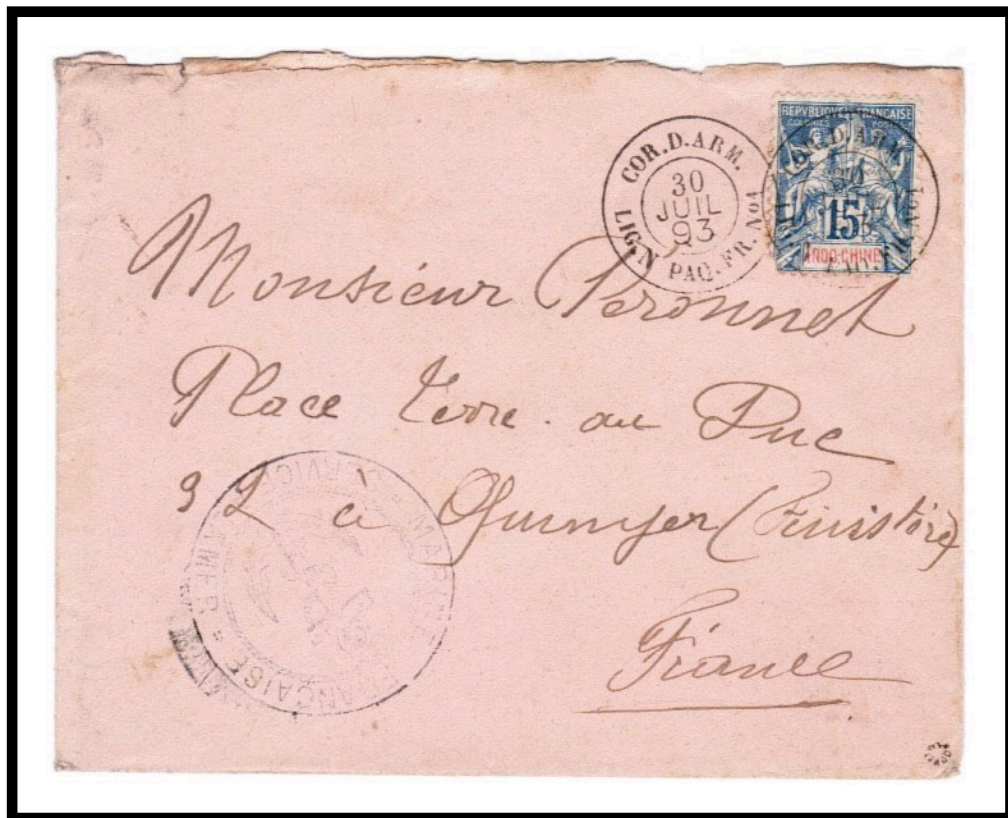 COR. D. ARM.
30
JUIL
93
LIG. N PAQ. FR. No4
REPVBLIQVE FRANÇAISE
COLONIES POSTES
COR. D. ARM.
15
INDO-CHINE
Monsieur Peronnet
Place Terre au Duc
à Quimper (Finistère)
France
MARINE FRANÇAISE
SERVICE A LA MER